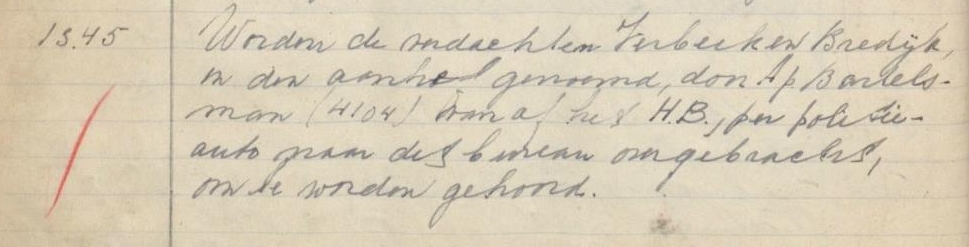 13.45 Worden de verdachten Verbeek en Bredijk,
in den aanhef genoemd, door A.p. Bartels-
man (4104) vanaf het H.B., per politie-
auto naar dit bureau overgebracht,
om te worden gehoord.